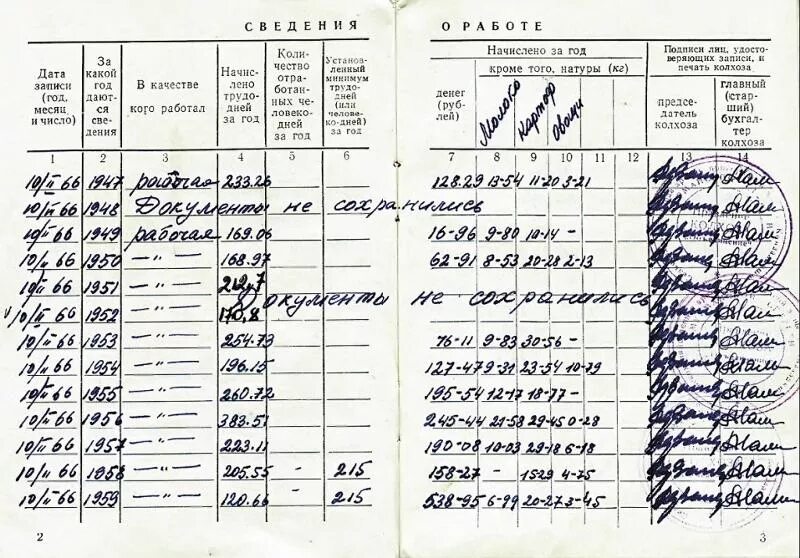 СВЕДЕНИЯ О РАБОТЕ
Дата записи (год, месяц и число)
За какой год даются сведения
В качестве кого работал
Начислено трудодней за год
Количество отработанных человеко-дней за год
Установленный минимум трудодней (или человеко-дней) за год
Начислено за год
денег (рублей)
кроме того, натуры (кг)
Молоко
картоф
Овощи
Подписи лиц, удостоверяющих записи, и печать колхоза
председатель колхоза
главный (старший) бухгалтер колхоза
1 2 3 4 5 6 7 8 9 10 11 12 13 14
10/II 66 1947 рабочая 233.26 128.29 13-54 11-20 3-21
10/II 66 1948 Документы не сохранились
10/II 66 1949 рабочая 169.06 16-96 9-80 10-14 -
10/II 66 1950 -"- 168.97 62-91 8-53 20-28 2-13
10/II 66 1951 -"- 212,7
Документы не сохранились
10/II 66 1952 -"- 170,8
10/II 66 1953 -"- 254.73 76-11 9-83 30-56 -
10/II 66 1954 -"- 196.15 127-47 9-31 23-54 10-79
10/II 66 1955 -"- 260.72 195-54 12-17 18-77 -
10/II 66 1956 -"- 383.51 245-44 21-58 29-45 0-28
10/II 66 1957 -"- 223.11 190-08 10-03 29-18 6-18
10/II 66 1958 -"- 205.55 - 215 158-27 - 15-29 4-75
10/II 66 1959 -"- 120.66 - 215 538-95 6-99 20-27 3-45
2
3